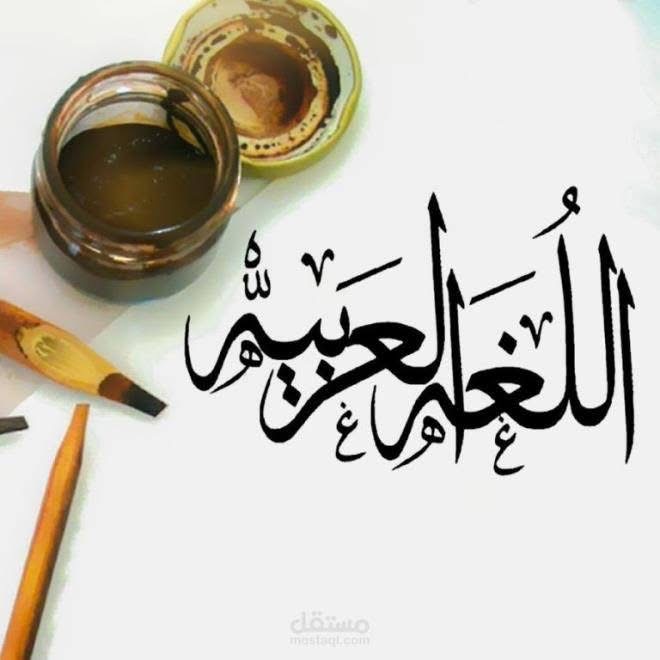 اللُغه العربيه
مستقل
mostaql.com